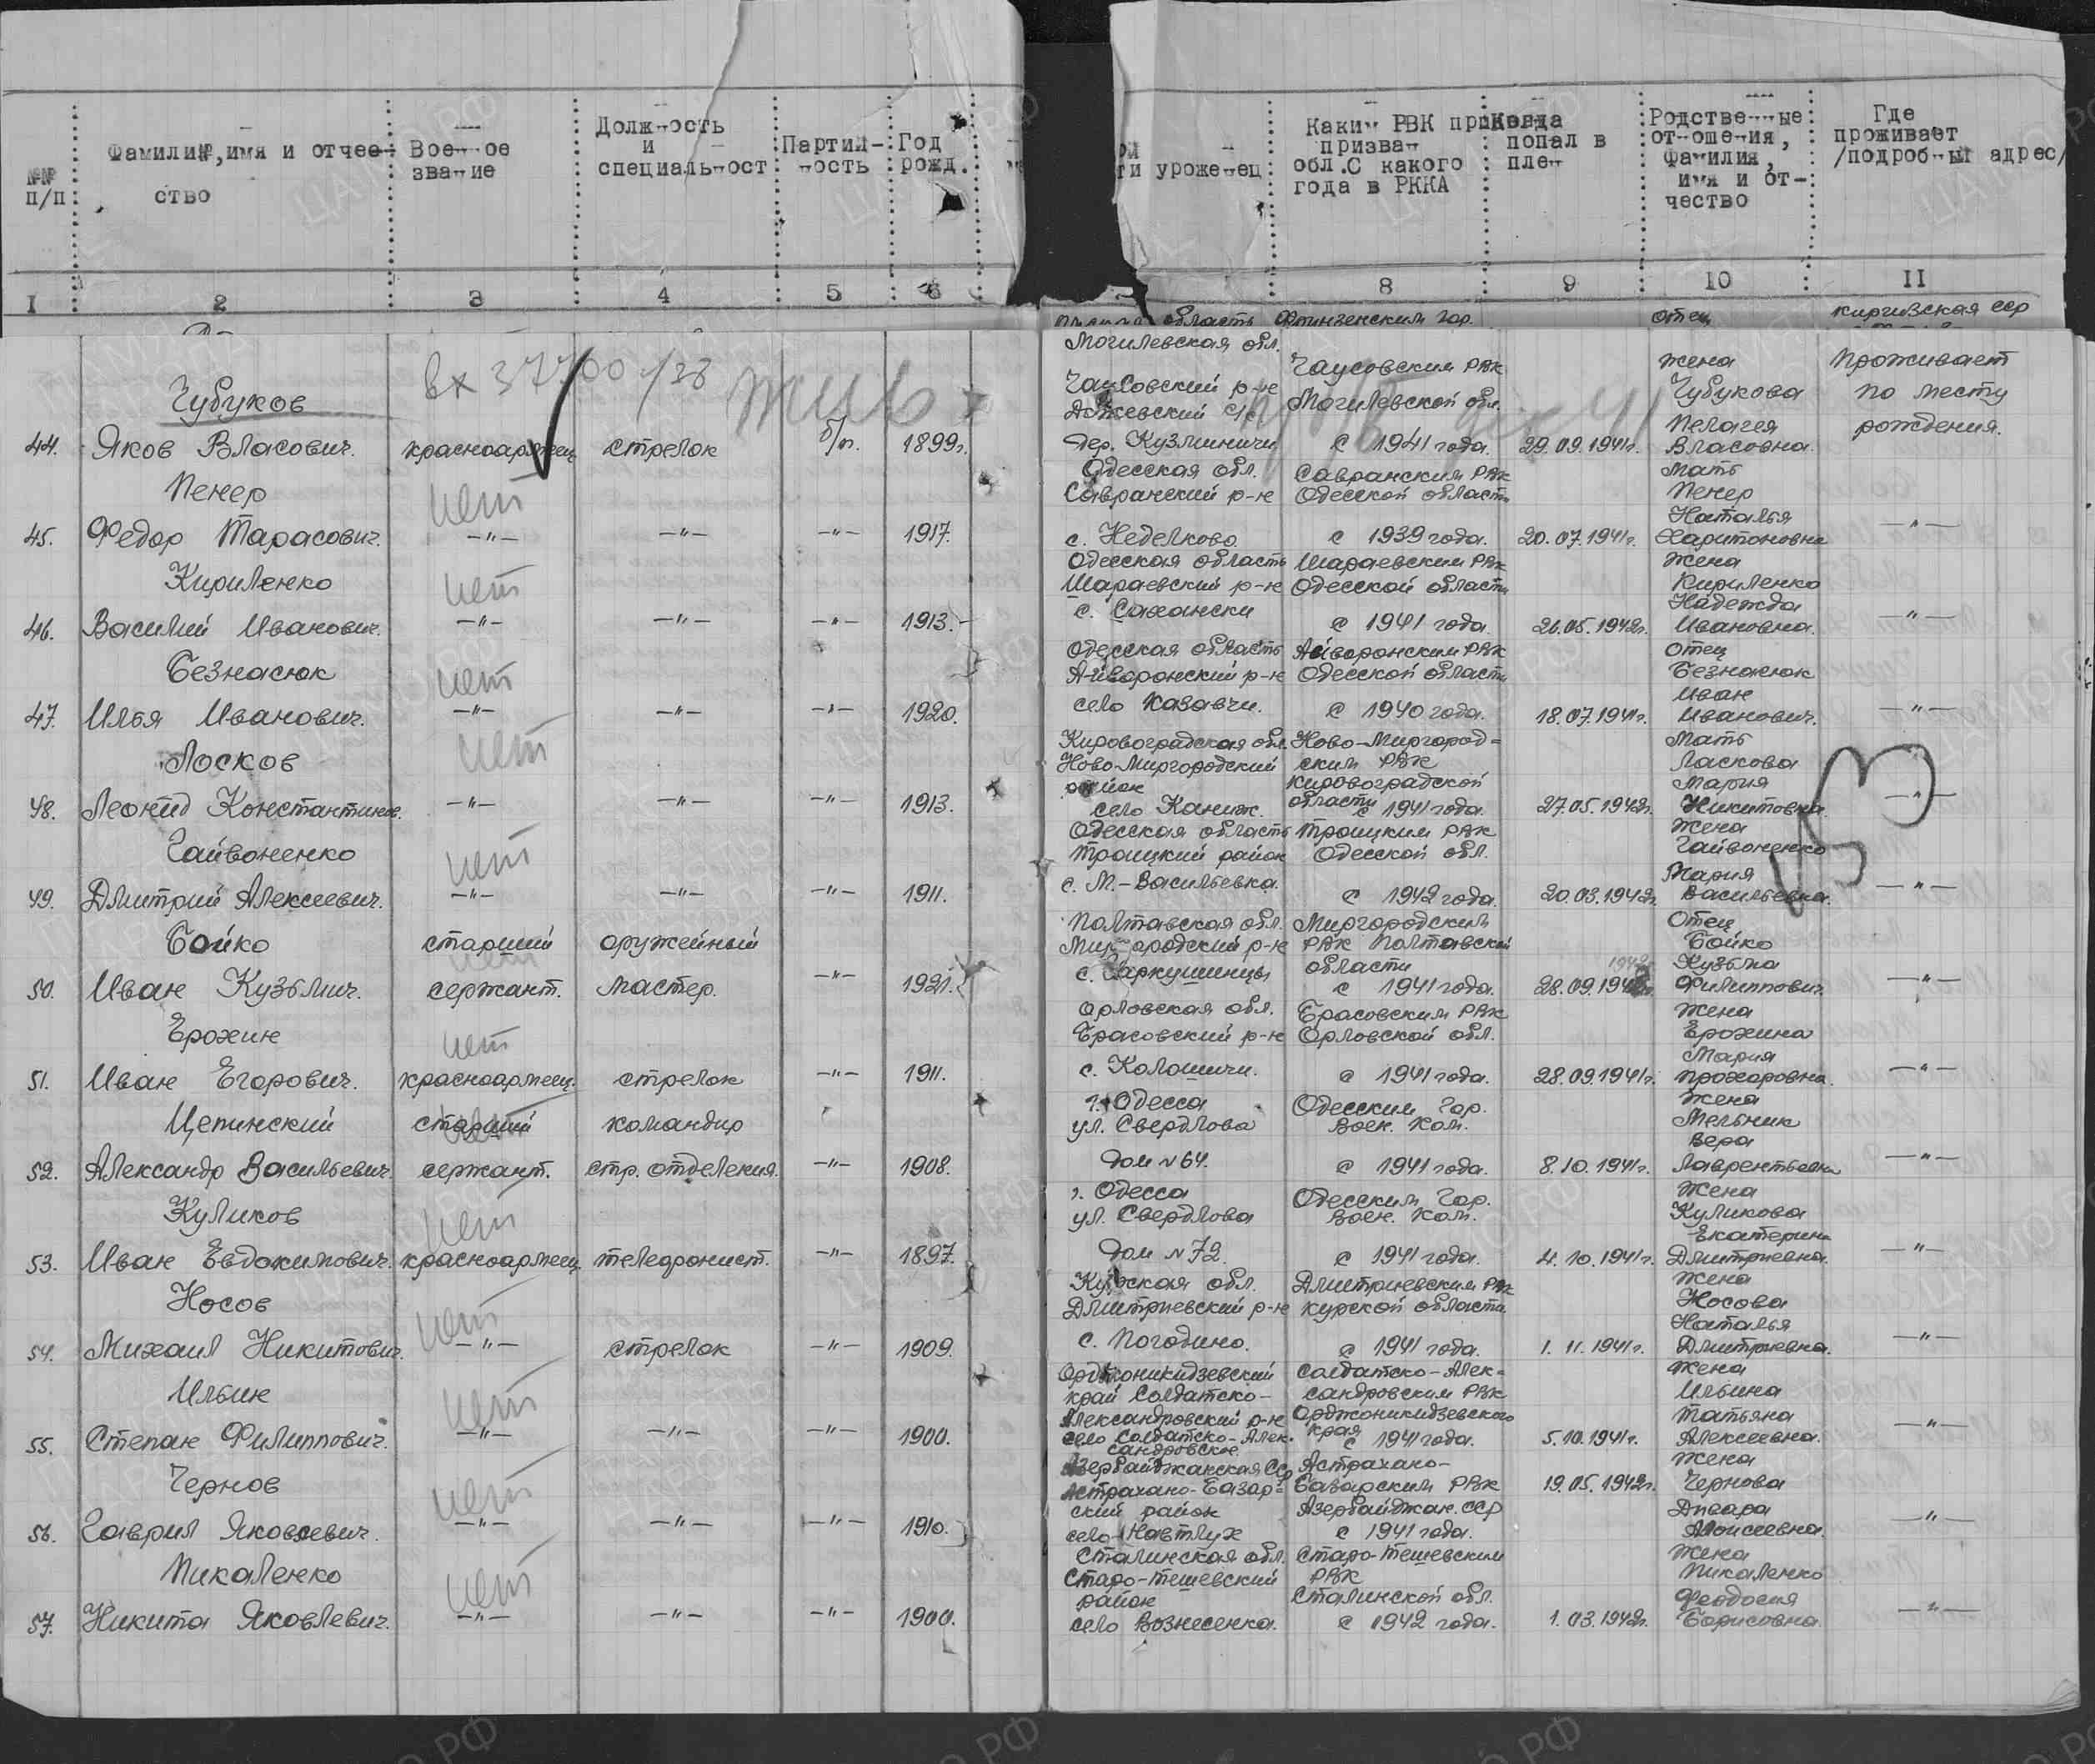 №№ п/п
Фамилия, имя и отчество
Военное звание
Должность и специальност
Партийность
Год рожд.
уроженец
Каким РВК призван
обл. С какого года в РККА
Когда попал в плен
Родственные отношения, фамилия, имя и отчество
Где проживает /подробный адрес/
1 2 3 4 5 6 8 9 10 11
область Фрунзенским гор. отец Киргизская ССР
вх 37700 /38 жив
Могилевская обл. Чаусовским РВК жена проживает
Чубуков Чаусовский р-н Могилевской обл. Чубукова по месту
с/с Пелагея рождения.
44. Яков Власович. красноармеец стрелок б/п. 1899г. дер. Кузьминичи с 1941 года. 29.09.1941г. Власовна.
Одесская обл. Савранским РВК мать
Пенер нет Савранский р-н Одесской области Пенер
Наталья
45. Федор Тарасович. -"- -"- -"- 1917. с. Неделково с 1939 года. 20.07.1941г. Харитоновна -"-
Одесская область Шараевским РВК жена
Кириленко нет Шараевский р-н Одесской области Кириленко
с. Сахански Надежда
46. Василий Иванович. -"- -"- -"- 1913. с 1941 года 26.05.1942г. Ивановна. -"-
Одесская область Айворонским РВК отец
Безнасюк нет Айворонский р-н Одесской области Безнасюк
Иван
47. Илья Иванович. -"- -"- -"- 1920. село Казавчи. с 1940 года. 18.07.1941г. Иванович. -"-
Кировоградская обл. Ново-Миргород- мать
Лосков нет Ново-Миргородский ским РВК Ласкова
район Кировоградской Мария
48. Леонид Константинов. -"- -"- -"- 1913. село Каниж. области с 1941 года. 27.05.1942г. Никитовна -"-
Одесская область Троицким РВК жена
Гайвоненко нет Троицкий район Одесской обл. Гайвоненко
Мария
49. Дмитрий Алексеевич. -"- -"- -"- 1911. с. М.-Васильевка. с 1942 года. 20.03.1942г. Васильевна. -"-
Полтавская обл. Миргородским отец
Бойко старший оружейный Миргородский р-н РВК Полтавской Бойко
нет области 1942 Кузьма
50. Иван Кузьмич. сержант. мастер. -"- 1921. с 1941 года. Филиппович. -"-
Орловская обл. Брасовским РВК жена
Ерохин нет Брасовский р-н Орловской обл. Ерохина
Мария
51. Иван Егорович. красноармеец. стрелок -"- 1911. с. Колошичи. с 1941 года. 28.09.1941г. Прохоровна. -"-
г. Одесса Одесским Гор. жена
Цепинский старший командир ул. Свердлова Воен. Ком. Мельник
нет Вера
52. Александр Васильевич. сержант. стр. отделения. -"- 1908. Дом №64. с 1941 года. 8.10.1941г. Лаврентьевна -"-
г. Одесса Одесским Гор. жена
Куликов нет ул. Свердлова Воен. Ком. Куликова
Екатерина
53. Иван Евдокимович. красноармеец телефонист. -"- 1897. Дом №72. с 1941 года. 4.10.1941г. Дмитриевна. -"-
Курская обл. Дмитриевским РВК жена
Носов нет Дмитриевский р-н Курской области Носова
Наталья
54. Михаил Никитович. -"- стрелок -"- 1909. с. Погодино. с 1941 года. 1.11.1941г. Дмитриевна. -"-
Орджоникидзевский Солдатско-Алек- жена
Ильин нет край Солдатско- сандровским РВК Ильина
Александровский р-н Орджоникидзевского Татьяна
55. Степан Филиппович. -"- -"- -"- 1900. село Солдатско-Алек- края с 1941 года. 5.10.1941г. Алексеевна. -"-
сандровское
Азербайджанская ССР Астрахано- жена
Чернов нет Астрахано-Базар- Базарским РВК 19.05.1942г. Чернова
ский район Азербайджан. ССР
56. Гаврил Яковлевич. -"- -"- -"- 1910. село Навтлух с 1941 года. Моисеевна. -"-
Сталинская обл. Старо-Тешевским жена
Пикаленко нет Старо-Тешевский РВК Пикаленко
район Сталинской обл. Феодосия
57. Никита Яковлевич. -"- -"- -"- 1900. село Вознесенка. с 1942 года. 1.03.1942г. Борисовна. -"-